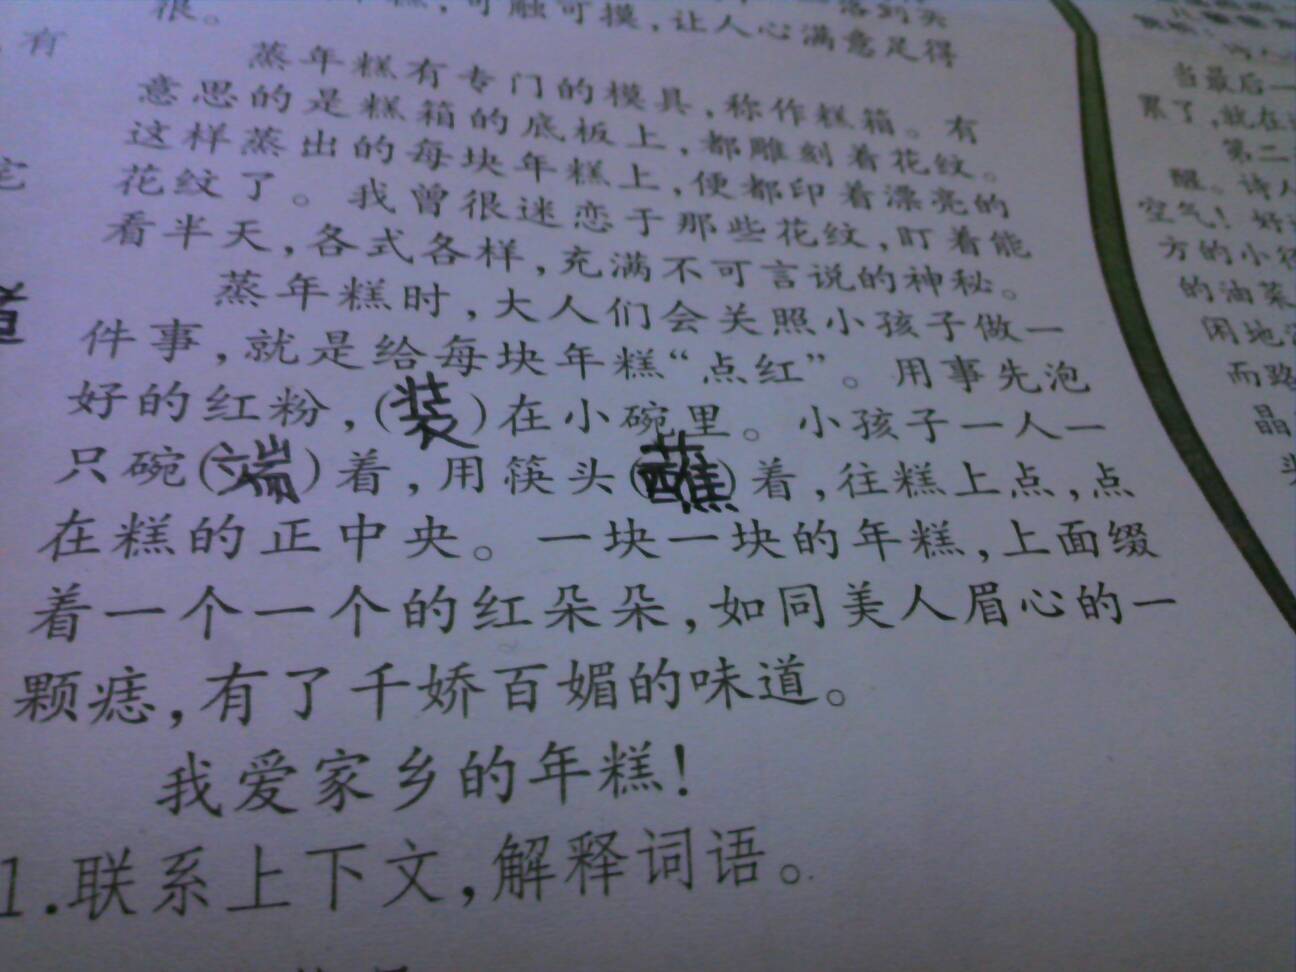 很。
可触可摸，让人心满意足得
蒸年糕有专门的模具，称作糕箱。有
意思的是糕箱的底板上，都雕刻着花纹。
这样蒸出的每块年糕上，便都印着漂亮的
花纹了。我曾很迷恋于那些花纹，盯着能
看半天，各式各样，充满不可言说的神秘。
蒸年糕时，大人们会关照小孩子做一
件事，就是给每块年糕“点红”。用事先泡
好的红粉，(装)在小碗里。小孩子一人一
只碗(端)着，用筷头(蘸)着，往糕上点，点
在糕的正中央。一块一块的年糕，上面缀
着一个一个的红朵朵，如同美人眉心的一
颗痣，有了千娇百媚的味道。
我爱家乡的年糕！
1.联系上下文，解释词语。
有
当最后一
累了，就在
第二
醒。诗人
空气！好
方的小径
的油菜
闲地
而路
晶